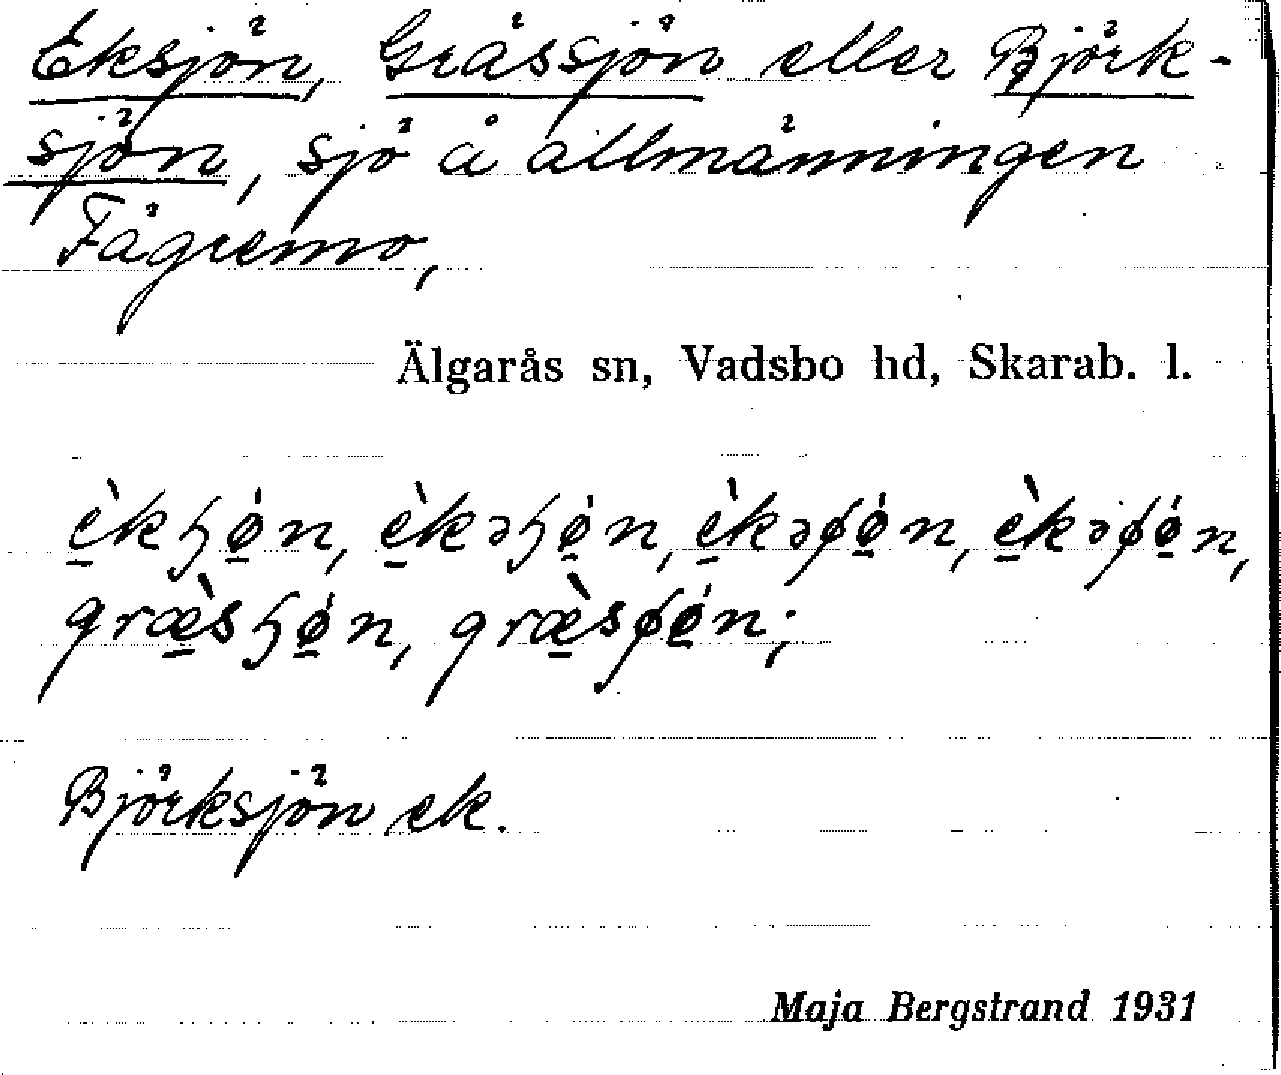 Eksjön, Grässjön eller Björk-
sjön, sjö å allmänningen
Fägremo,
Älgarås sn, Vadsbo hd, Skarab. l.
è̱kɧǿ̱n, è̱kəɧǿ̱n, è̱kəʃǿ̱n, è̱kəʃǿ̱n,
græ̱̀sɧǿ̱n, græ̱̀sʃǿ̱n;
Björksjön ek.
Maja Bergstrand 1931